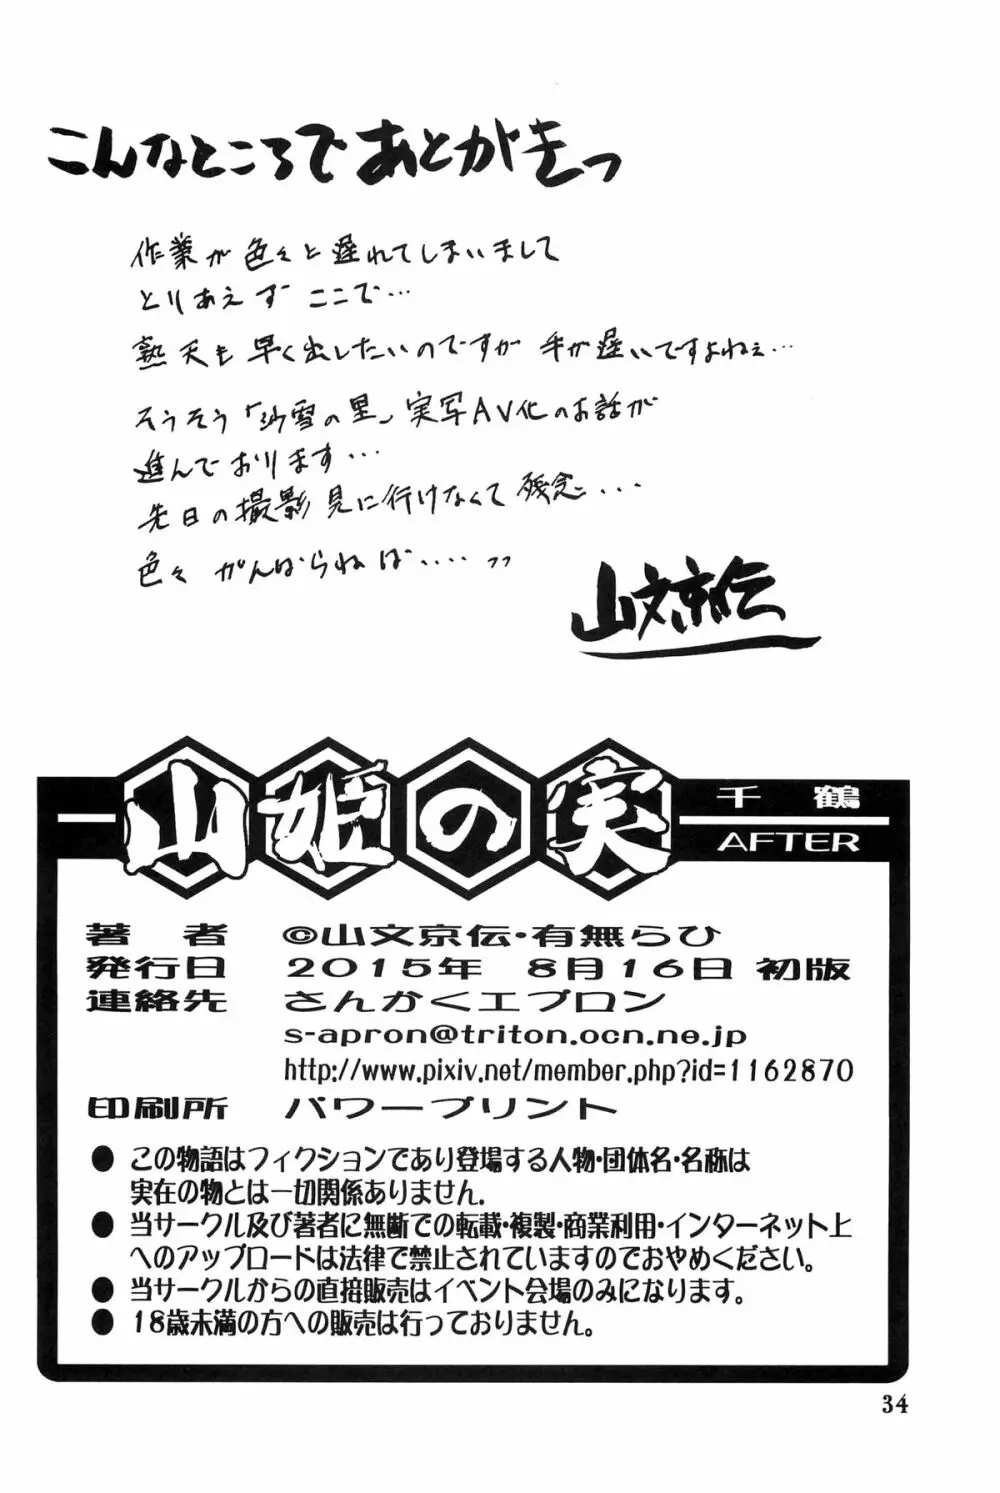 こんなところであとがきっ
作業が色々と遅れてしまいまして
とりあえず ここで…
熟天も 早く出したいのですが 手が遅いですよねぇ…
そうそう「沙雪の里」実写AV化のお話が
進んでおります…
先日の撮影見に行けなくて 残念…
色々 がんばらねば…‥ッッ
山文京伝
山姫の実
千鶴
AFTER
著者 ©山文京伝・有無らひ
発行日 2015年 8月16日 初版
連絡先 さんかくエプロン
s-apron@triton.ocn.ne.jp
http://www.pixiv.net/member.php?id=1162870
印刷所 パワープリント
● この物語はフィクションであり登場する人物・団体名・名称は
実在の物とは一切関係ありません.
● 当サークル及び著者に無断での転載・複製・商業利用・インターネット上
へのアップロードは法律で禁止されていますのでおやめください。
● 当サークルからの直接販売はイベント会場のみになります。
● 18歳未満の方への販売は行っておりません。
34